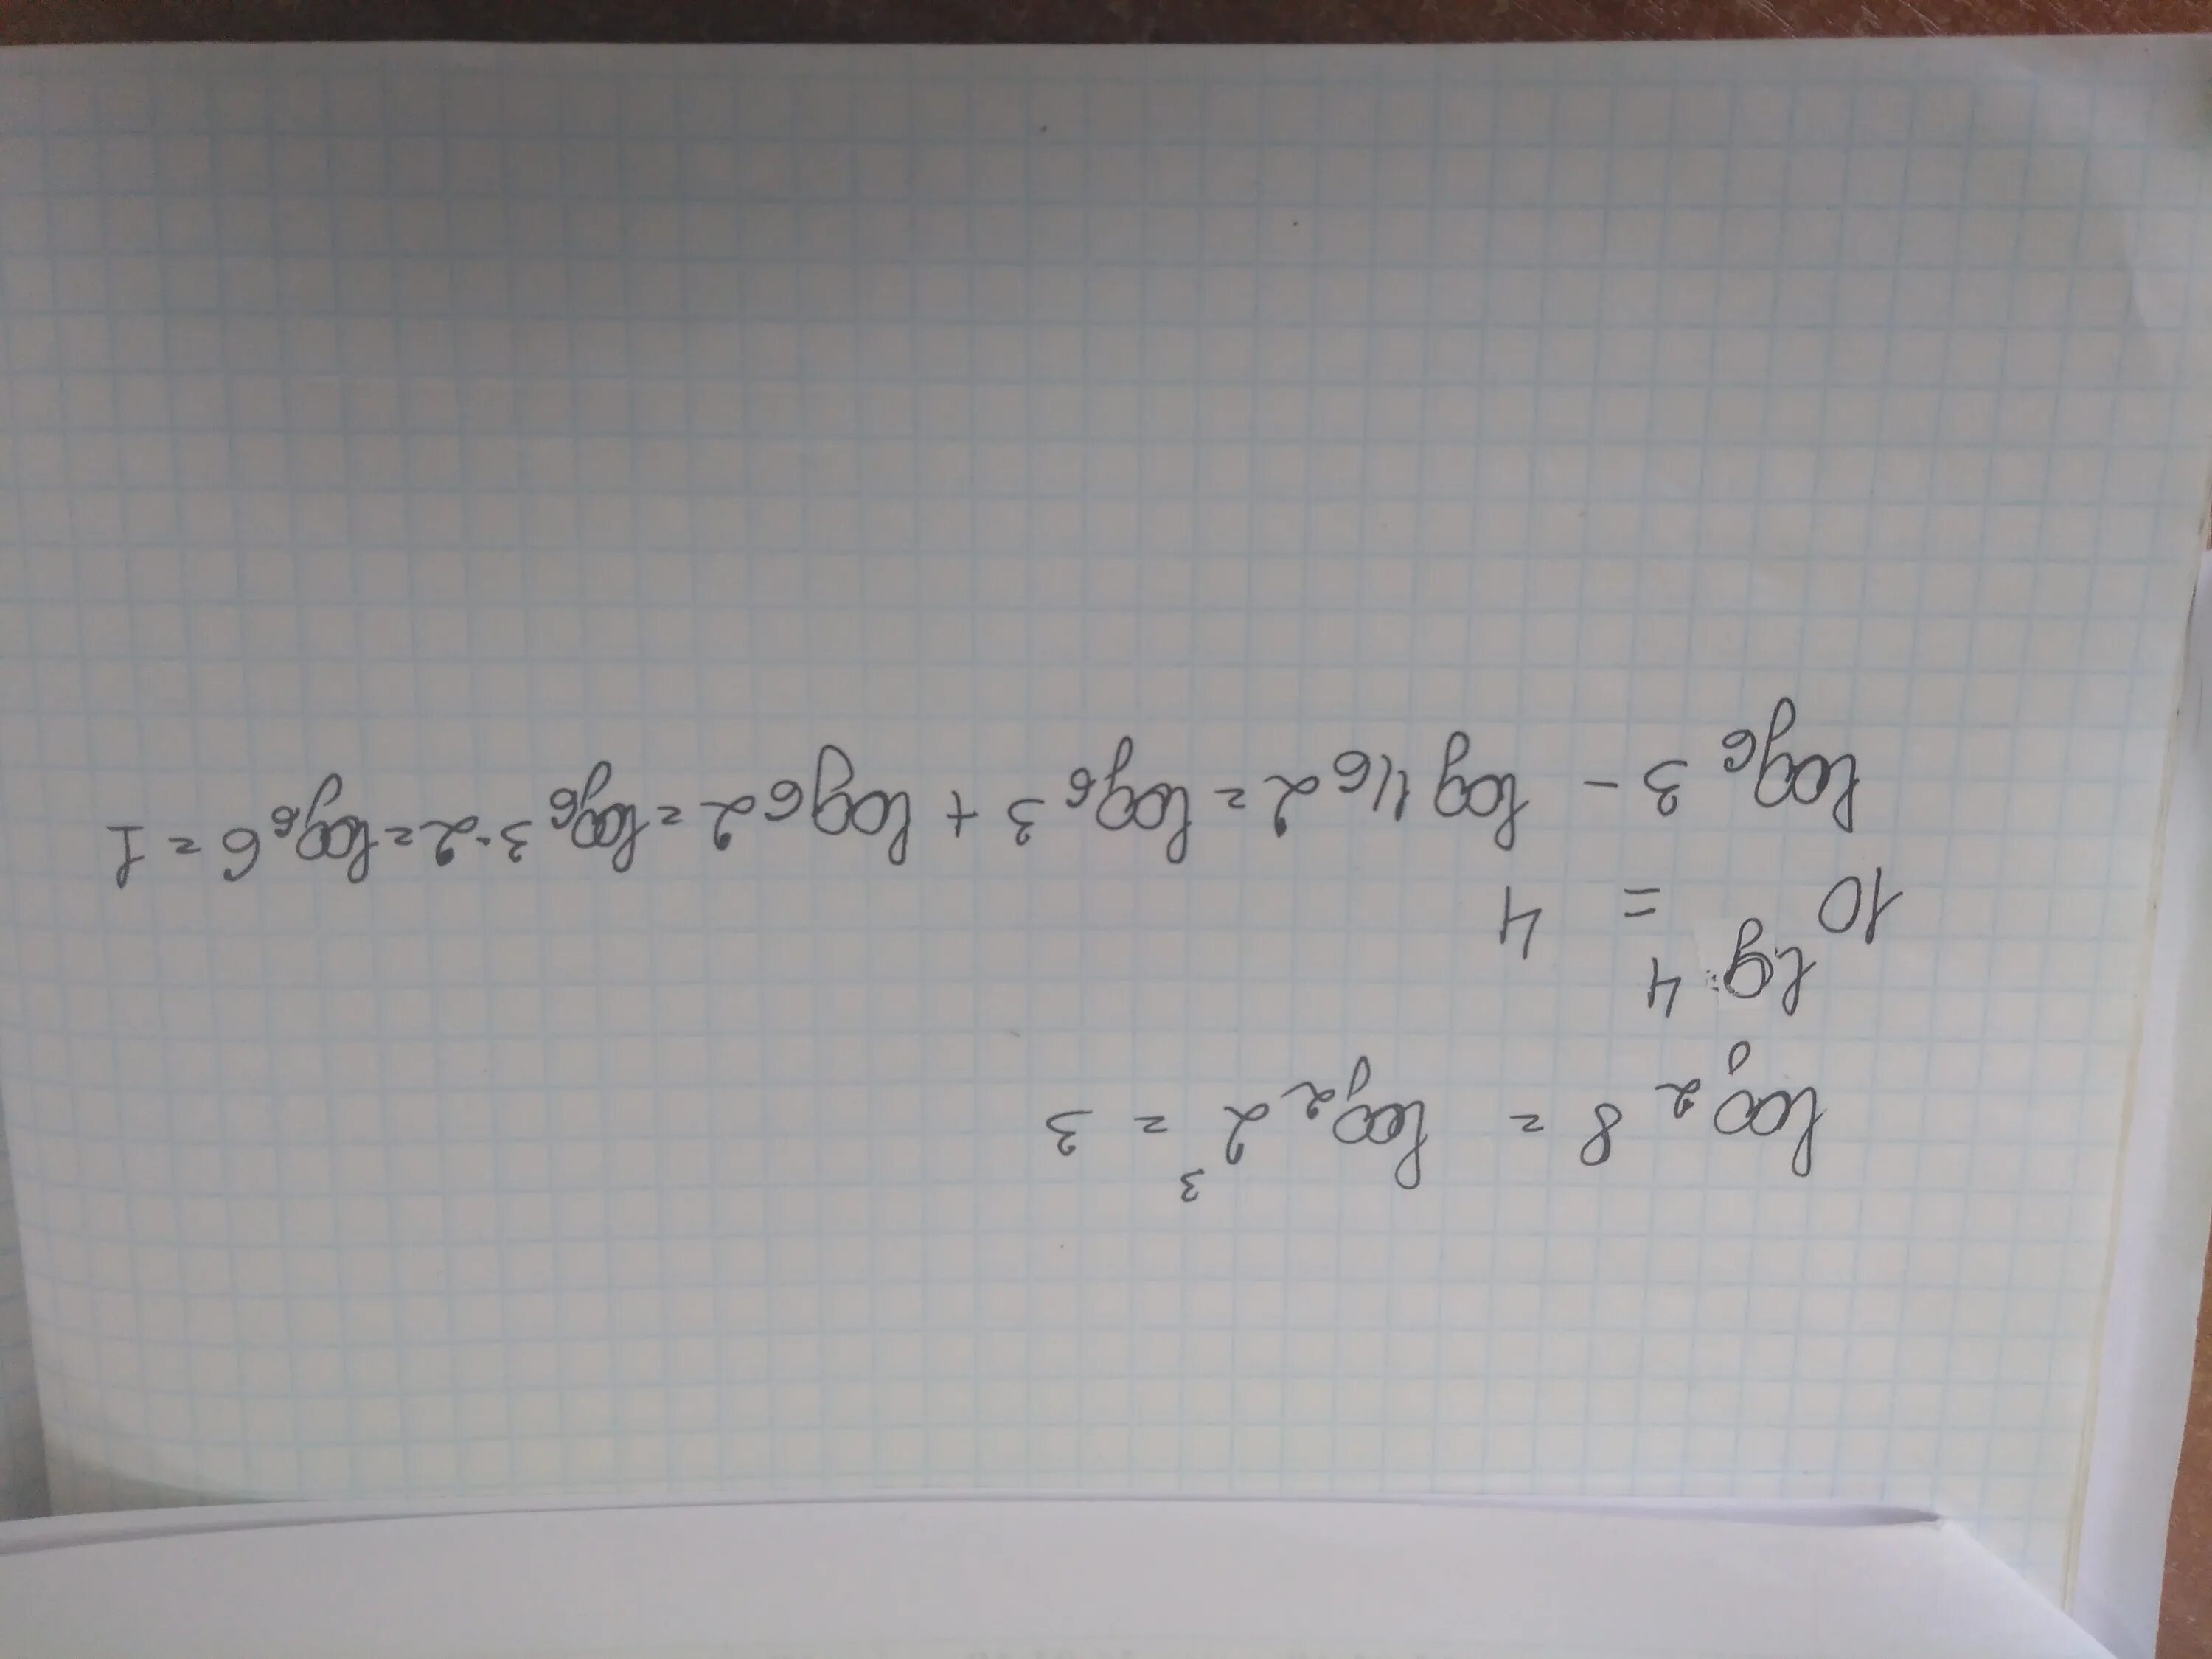 log₂ 8 = log₂ 2³ = 3
10^(lg 4) = 4
log₆ 3 - log 1/6 2 = log₆ 3 + log₆ 2 = log₆ 3·2 = log₆ 6 = 1